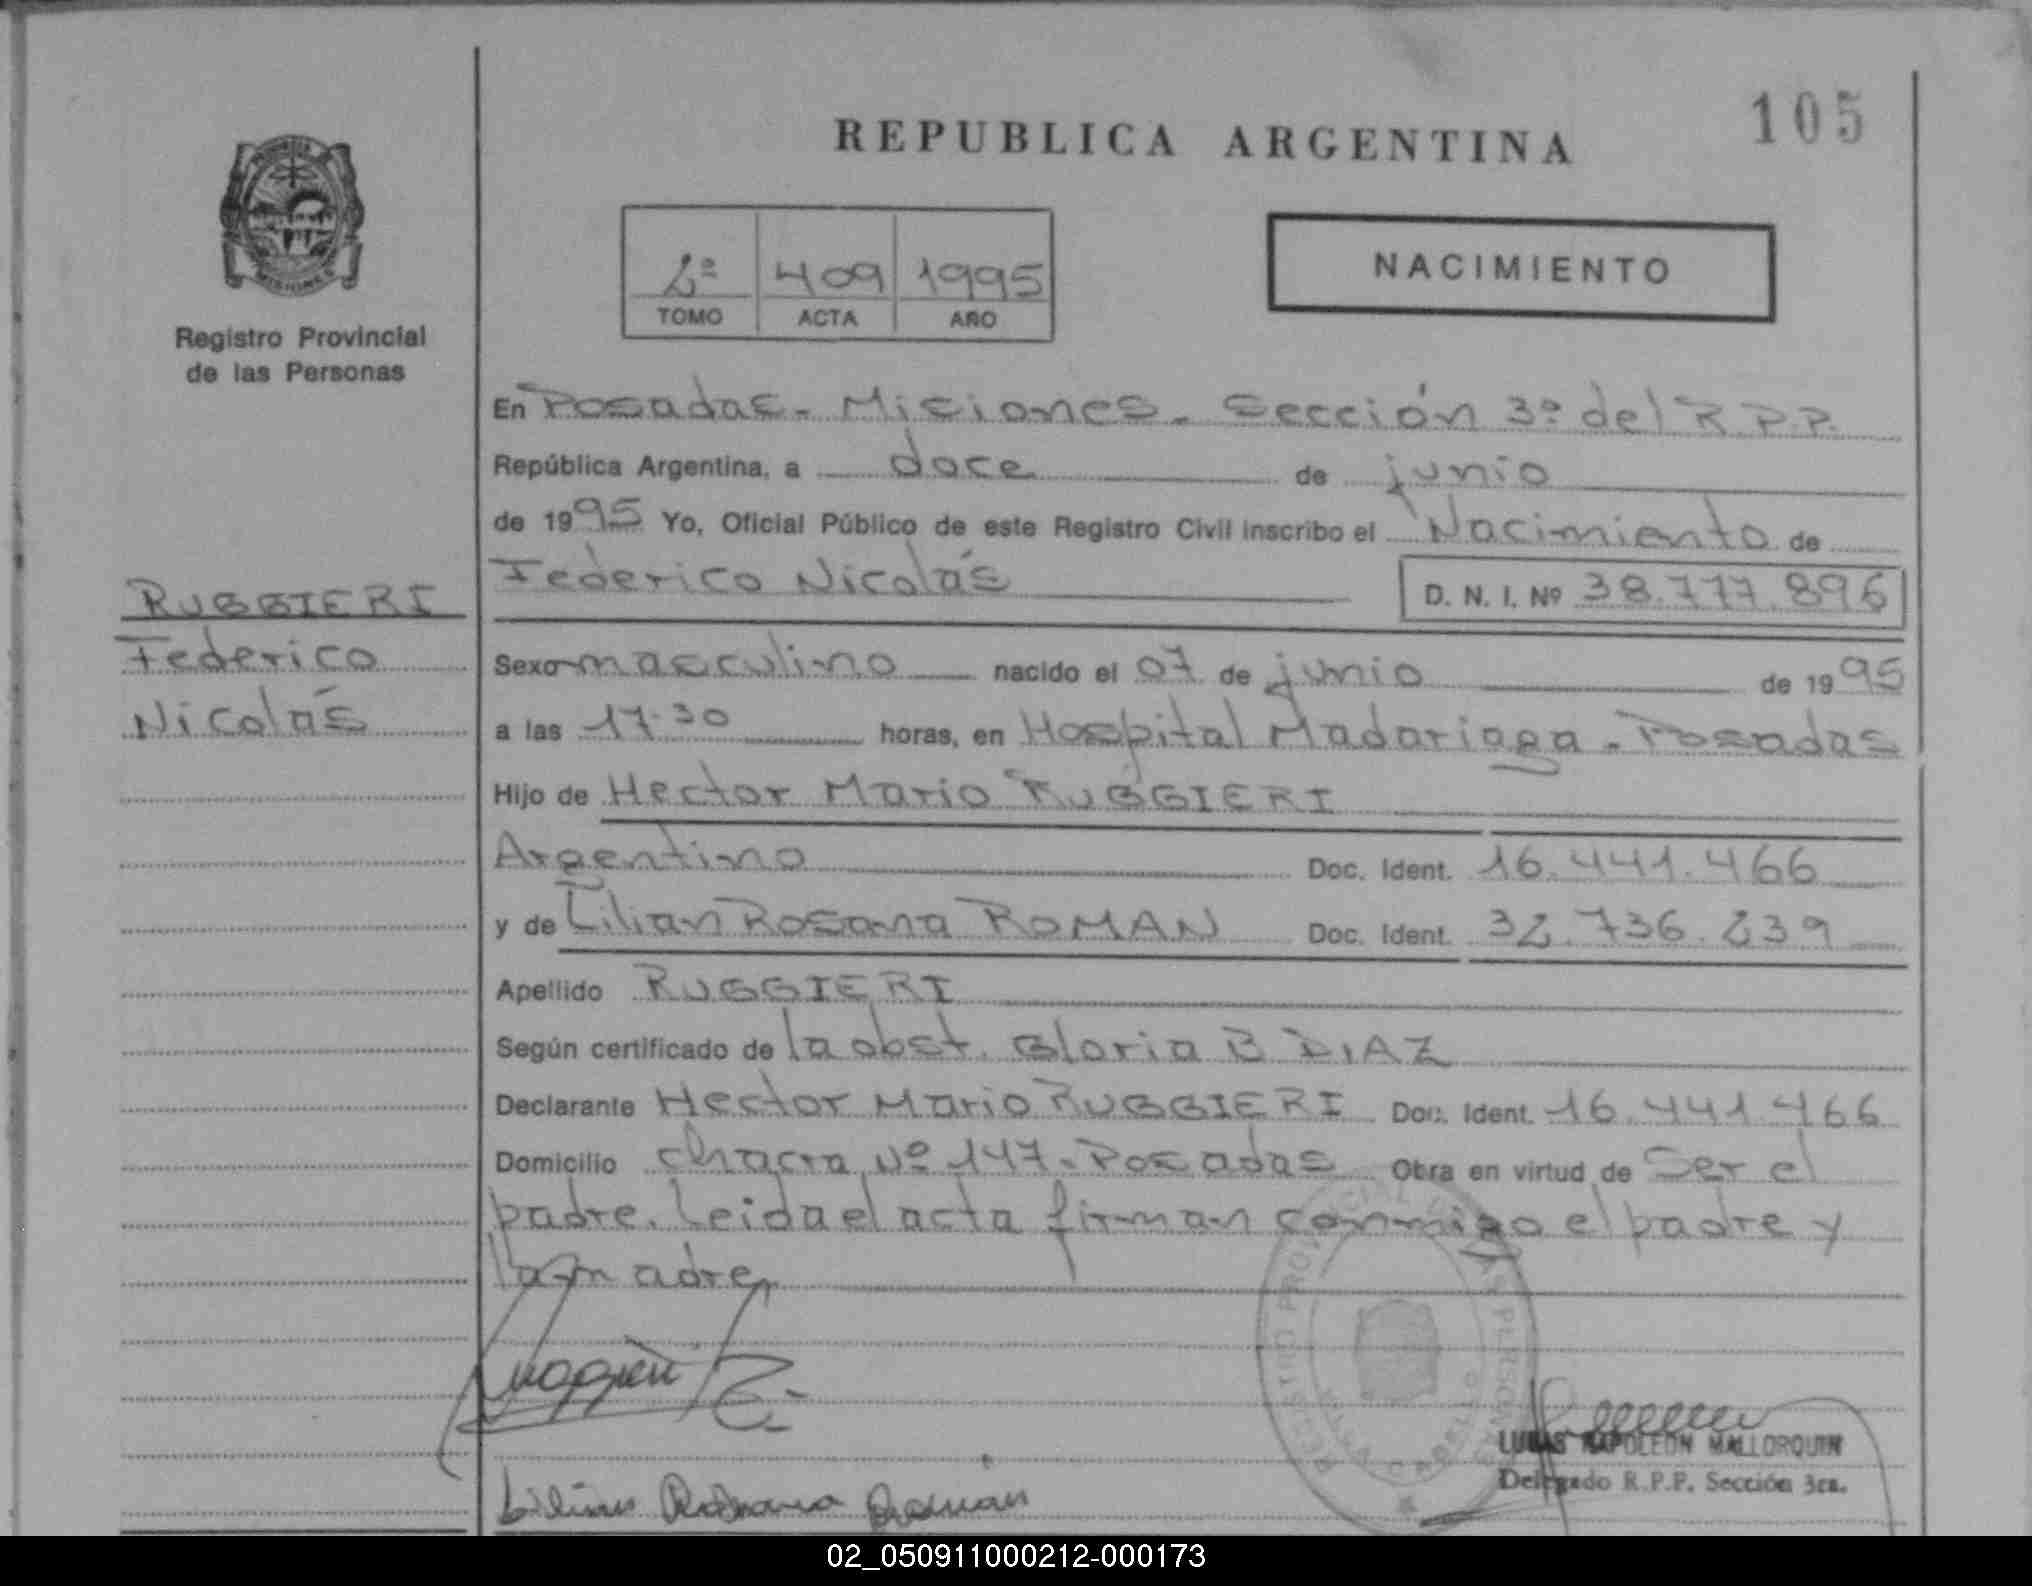 105
REPUBLICA ARGENTINA
2º 409 1995
TOMO ACTA AÑO
NACIMIENTO
Registro Provincial
de las Personas
En Posadas - Misiones - Sección 3º del R.P.P.
República Argentina, a doce de junio
de 1995 Yo, Oficial Público de este Registro Civil inscribo el Nacimiento de
Federico Nicolás D. N. I. Nº 38.777.896
RUGGIERI
Federico
Nicolás
Sexo masculino nacido el 07 de junio de 1995
a las 17.30 horas, en Hospital Madariaga - Posadas
Hijo de Hector Mario RUGGIERI
Argentino Doc. Ident. 16.441.466
y de Lilian Rosana ROMAN Doc. Ident. 32.736.239
Apellido RUGGIERI
Según certificado de la obst. Gloria B DIAZ
Declarante Hector Mario RUGGIERI Doc. Ident. 16.441.466
Domicilio chacra Nº 147 - Posadas Obra en virtud de Ser el
padre. Leida el acta firman conmigo el padre y
la madre
Ruggieri
LUCAS NAPOLEON MALLORQUIN
Delegado R.P.P. Sección 3ra.
Lilian Rosana Roman
02_050911000212-000173